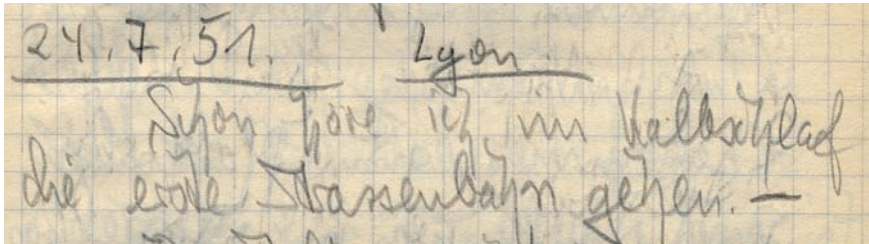 24.7.51. Lyon.
Schon höre ich im Halbschlaf
die erste Strassenbahn gehen. —